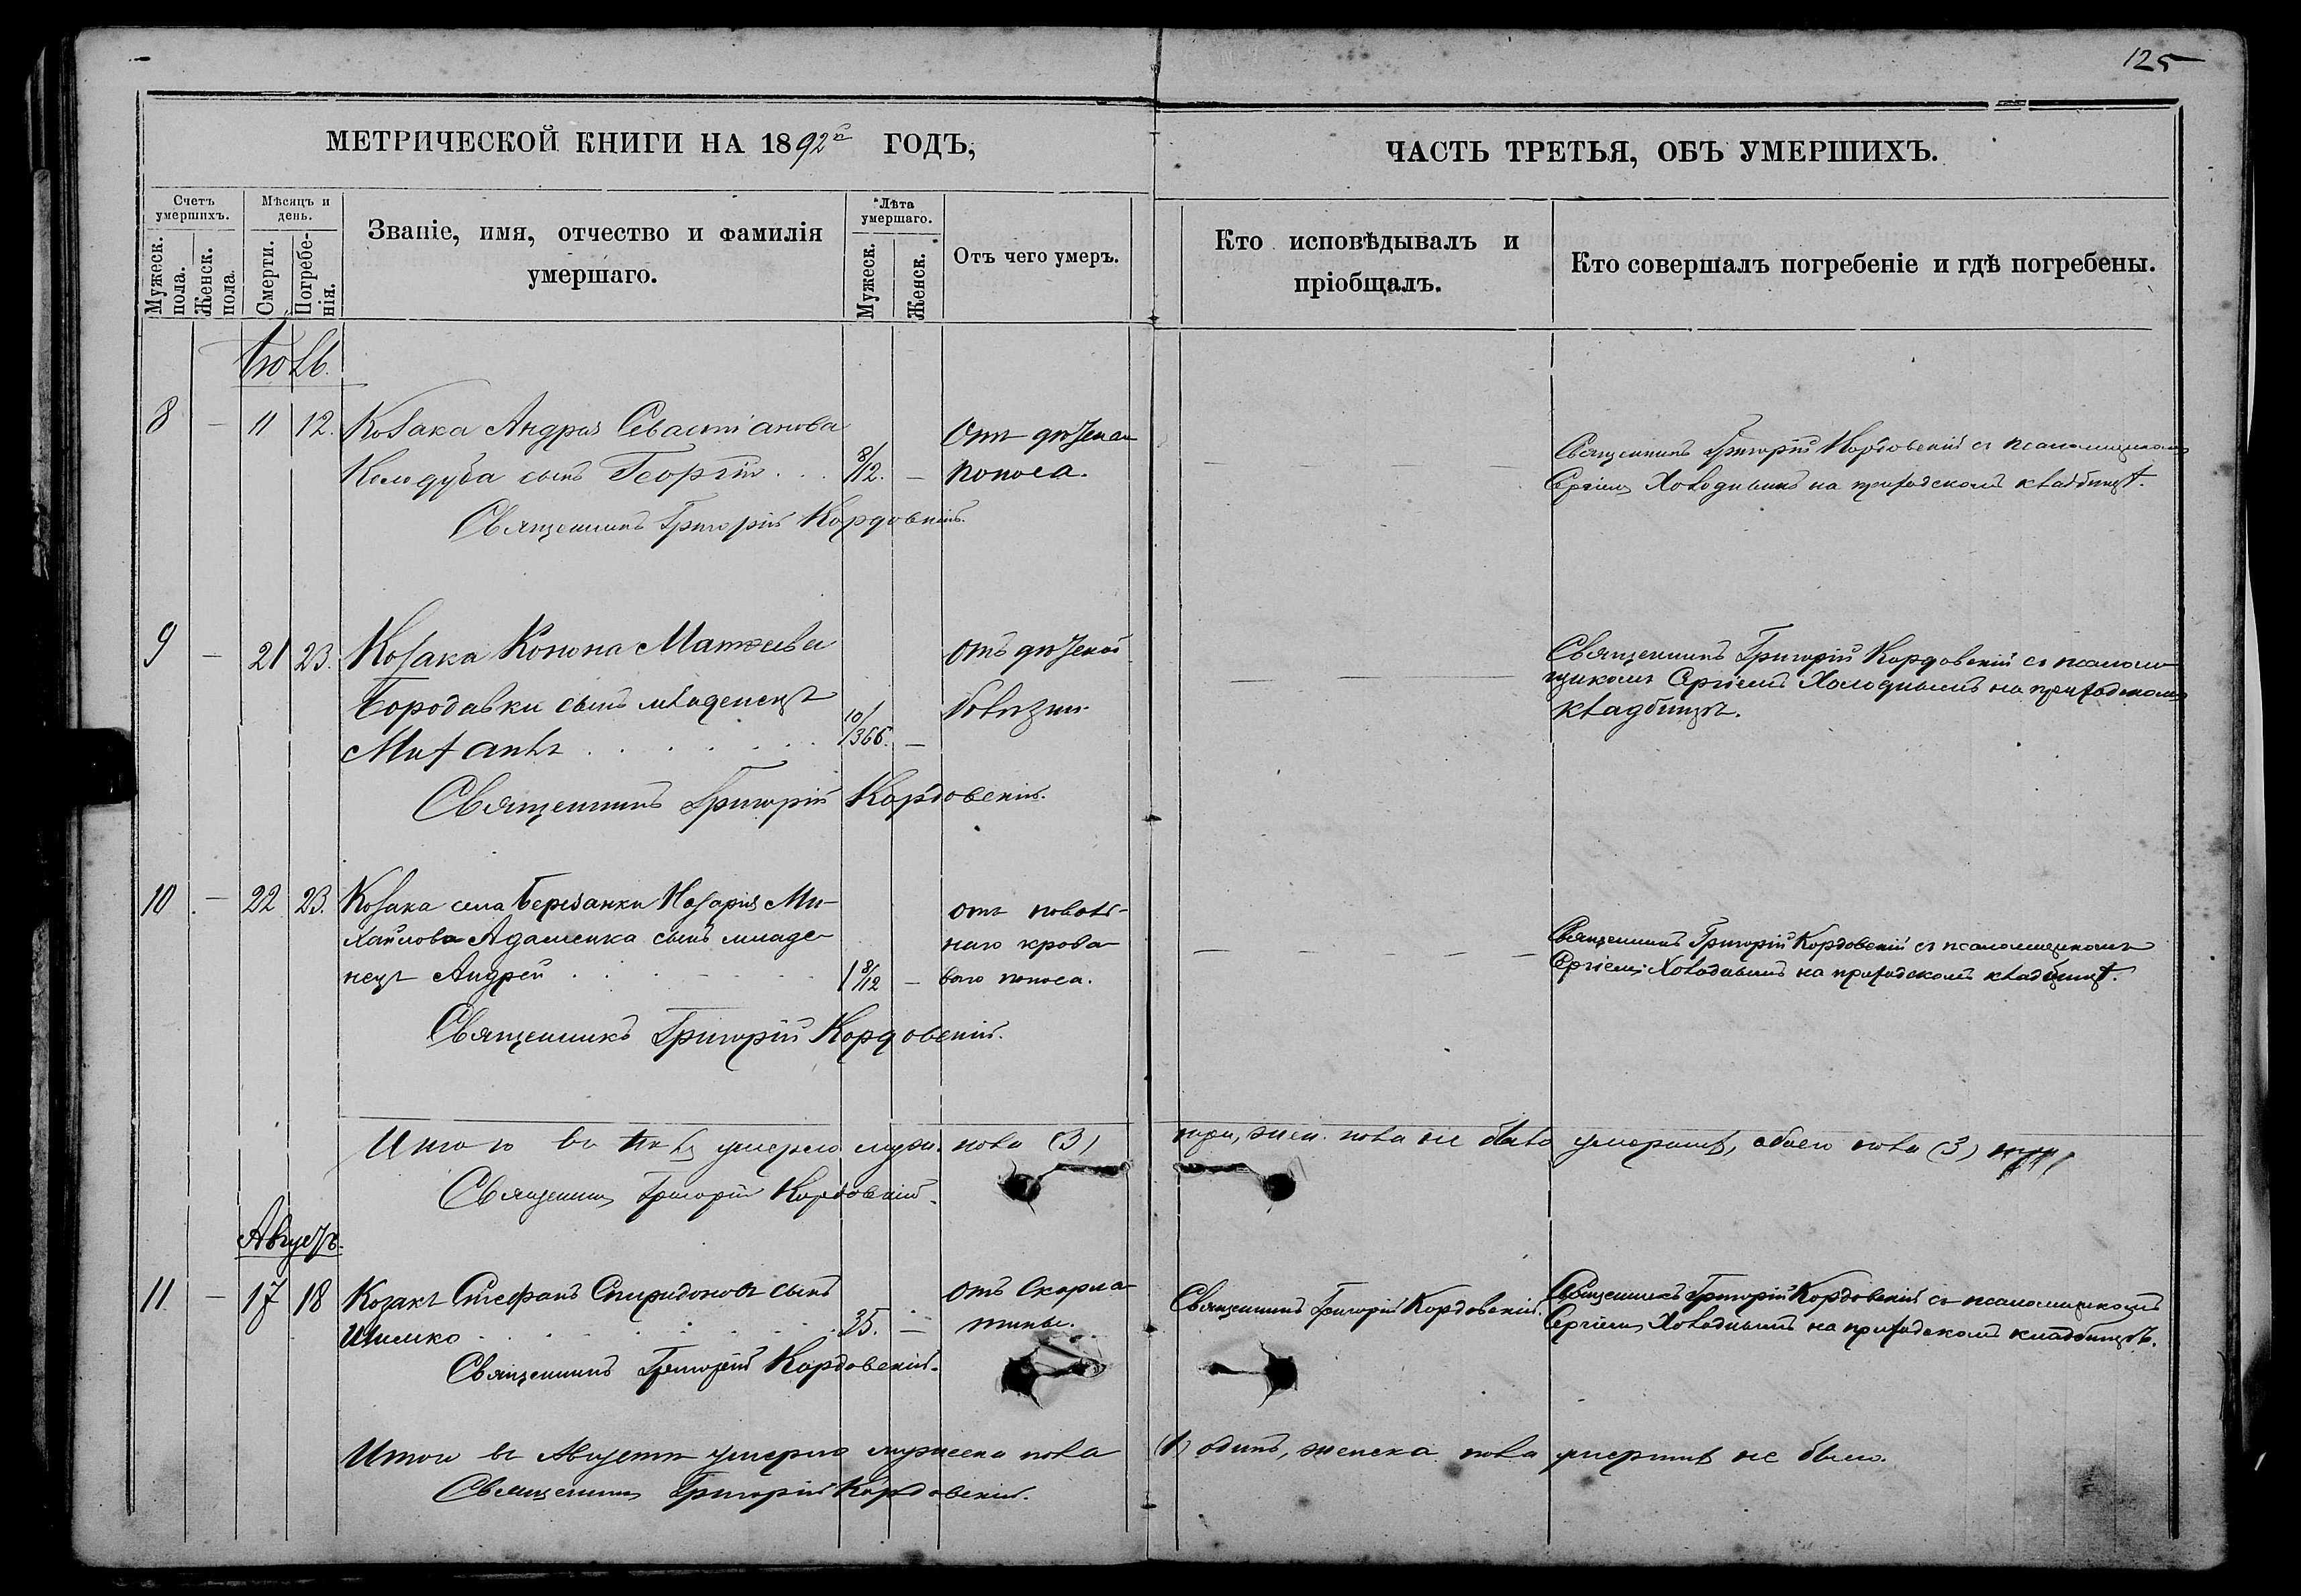 125
МЕТРИЧЕСКОЙ КНИГИ НА 1892й ГОДЪ,
ЧАСТЬ ТРЕТЬЯ, ОБЪ УМЕРШИХЪ.
Счетъ умершихъ.
Мужеск. пола.
Женск. пола.
Мѣсяцъ и день.
Смерти.
Погребенія.
Званіе, имя, отчество и фамилія
умершаго.
Лѣта умершаго.
Мужеск.
Женск.
Отъ чего умеръ.
Кто исповѣдывалъ и
пріобщалъ.
Кто совершалъ погребеніе и гдѣ погребены.
Іюль.
8 — 11 12. Козака Андрея Севастіанова
Колодуба сынъ Георгій . . . 8/12. —
Отъ
поноса.
Священникъ Григорій Кордовскій съ псаломщикомъ
Сергіемъ Холоднымъ на приходскомъ кладбищѣ.
Священникъ Григорій Кордовскій.
9 — 21 23. Козака Конона Матѳеева
Бородавки сынъ младенецъ
Михаилъ . . . . . . . 10/366. —
Отъ
болѣзни.
Священникъ Григорій Кордовскій съ псаломщикомъ Сергіемъ Холоднымъ на приходскомъ
кладбищѣ.
Священникъ Григорій Кордовскій.
10 — 22 23. Козака села Березанки Назарія Ми-
хайлова Адаменка сынъ младе-
нецъ Андрей . . . . . . 1 8/12 —
отъ поваль-
наго крова-
ваго поноса.
Священникъ Григорій Кордовскій съ псаломщикомъ
Сергіемъ Холоднымъ на приходскомъ кладбищѣ.
Священникъ Григорій Кордовскій.
Итого въ Іюлѣ умерло муж. пола (3) три, жен. пола не было умершихъ, обоего пола (3) три
Священникъ Григорій Кордовскій.
Августъ.
11 — 17 18 Козакъ Стефанъ Спиридоновъ сынъ
Шимко . . . . . . . . 35. —
отъ Скарла-
тины.
Священникъ Григорій Кордовскій.
Священникъ Григорій Кордовскій съ псаломщикомъ
Сергіемъ Холоднымъ на приходскомъ кладбищѣ.
Священникъ Григорій Кордовскій.
Итого въ Августѣ умерло мужеска пола (1) одинъ, женска пола умершихъ не было.
Священникъ Григорій Кордовскій.